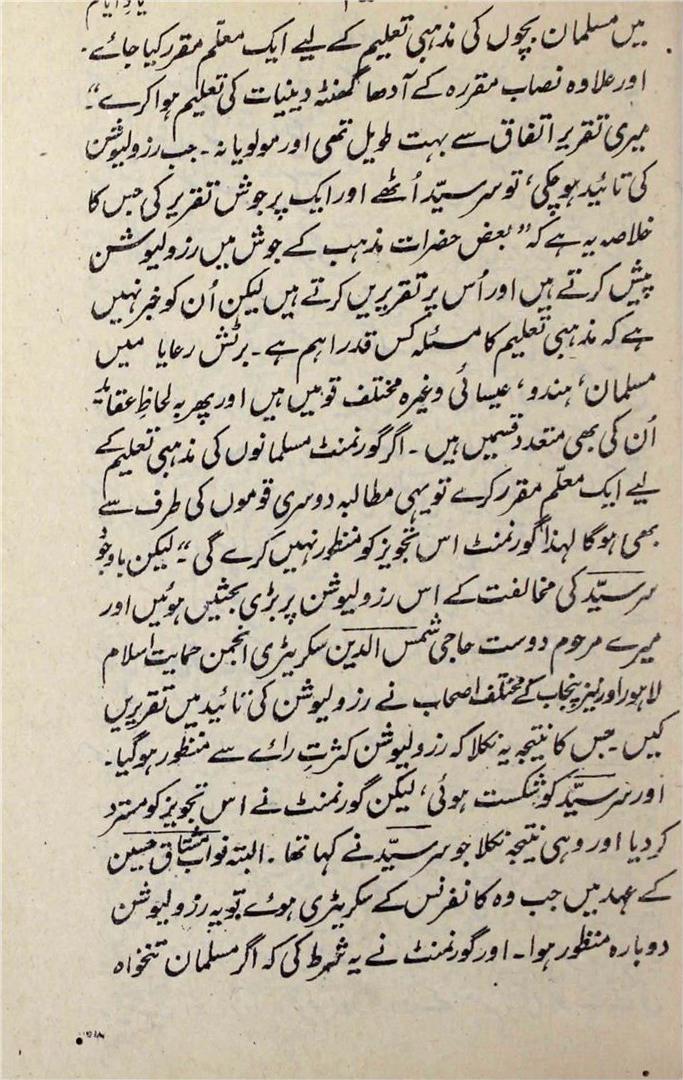 یادِ ایام
میں مسلمان بچوں کی مذہبی تعلیم کے لیے ایک معلّم مقرر کیا جائے۔
اور علاوہ نصاب مقررہ کے آدھا گھنٹہ دینیات کی تعلیم ہوا کرے"۔
میری تقریر اتفاق سے بہت طویل تھی اور مولویانہ۔ جب رزولیوشن
کی تائید ہوچکی، تو سرسیّد اُٹھے اور ایک پرجوش تقریر کی جس کا
خلاصہ یہ ہے کہ "بعض حضرات مذہب کے جوش میں رزولیوشن
پیش کرتے ہیں اور اُس پر تقریریں کرتے ہیں لیکن اُن کو خبر نہیں
ہے کہ مذہبی تعلیم کا مسئلہ کس قدر اہم ہے۔ برٹش رعایا میں
مسلمان، ہندو، عیسائی وغیرہ مختلف قومیں ہیں اور پھر بہ لحاظِ عقاید
اُن کی بھی متعدد قسمیں ہیں۔ اگر گورنمنٹ مسلمانوں کی مذہبی تعلیم کے
لیے ایک معلّم مقرر کرے تو یہی مطالبہ دوسری قوموں کی طرف سے
بھی ہوگا لہذا گورنمنٹ اس تجویز کو منظور نہیں کرے گی"۔ لیکن باوجود
سرسیّد کی مخالفت کے اس رزولیوشن پر بڑی بحثیں ہوئیں اور
میرے مرحوم دوست حاجی شمس الدین سکریٹری انجمن حمایت اسلام
لاہور اور نیز پنجاب کے مختلف اصحاب نے رزولیوشن کی تائید میں تقریریں
کیں۔ جس کا نتیجہ یہ نکلا کہ رزولیوشن کثرتِ رائے سے منظور ہوگیا۔
اور سرسیّد کو شکست ہوئی، لیکن گورنمنٹ نے اس تجویز کو مسترد
کردیا اور وہی نتیجہ نکلا جو سرسیّد نے کہا تھا۔ البتہ نواب مشتاق حسین
کے عہد میں جب وہ کانفرنس کے سکریٹری ہوئے تو یہ رزولیوشن
دوبارہ منظور ہوا۔ اور گورنمنٹ نے یہ شرط کی کہ اگر مسلمان تنخواہ